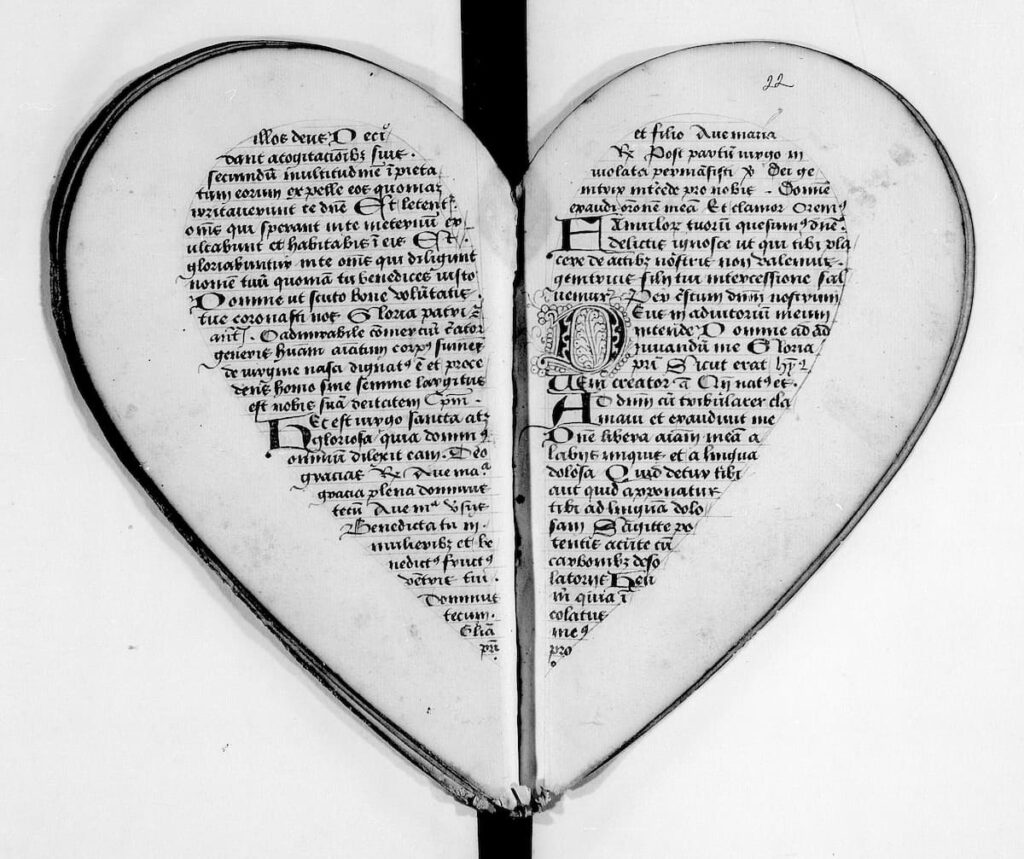 illos deus D eci⁹
dant acogitacioībȝ suis .
secundū multitudinē īpieta
tum eorum expelle eos quoniaȝ
irritaverunt te dnē Et letent⁹
omīs qui sperant inte ineternū ex
ultabunt et habitabis ī eis Et .
gloriabuntur inte omīs qui diligunt
nomē tuū quoniam tu benedices iusto
Domine ut scuto bone volūtatis
tue coronasti nos Gloria patri ⁊
ant̄. O admirabile cōmerciū c̄ator
generis huani aīatum corp⁹ sumēs
de virgine nasci dignat⁹ ē et proce
dens homo sine semine largitus
est nobis suā deitatem Cpm̄ .
Hec est virgo sancta atȝ
gloriosa quia domin⁹
omniū dilexit eam. Deo
gracias R Ave maª
gracia plena dominus
tecū Ave mª vs̄us
Benedicta tu in .
mulieribȝ et be
nedict⁹ fruct⁹
vētris tui .
Dominus
tecum .
Gliā
pr̄i .
22
et filio Ave maria
R Post partū virgo in
violata permāsisti v̄ Dei ge
nitrix ītcede pro nobis . Domie
exaudi oronē meā Et clamor Orem⁹
Famulor tuorū quesum⁹ dnē
delictis ignosce ut qui tibi pla
cere de actibȝ nostris non valemus
genitricis filii tui intercessione sal
vemur Per c̄stum dnm̄ nostrum
Deus in adiutorium meum
intende D omine ad ad
iuvandū me Gloria
pr̄i Sicut erat hy⁹
Veni creator ā Qn̄ nat⁹ es .
AD dnm̄ cū tribularer cla
mavi et exaudivit me
Dne libera aīam meā a
labiis iniquis et a lingua
dolosa Quid detur tibi
aut quid apponatur
tibi ad linguā dolo
sam Sagitte po
tentis acute cū
carbonibȝ deso
latoriis Heu
m̄ quia ī
colatus
me⁹
pro